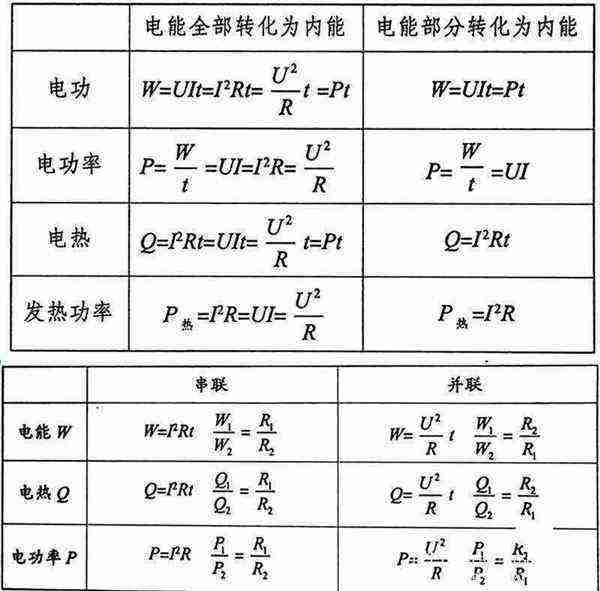 电能全部转化为内能 电能部分转化为内能
电功 W=UIt=I²Rt= U²/R t =Pt W=UIt=Pt
电功率 P= W/t =UI=I²R= U²/R P= W/t =UI
电热 Q=I²Rt=UIt= U²/R t=Pt Q=I²Rt
发热功率 P热=I²R=UI= U²/R P热=I²R
串联 并联
电能W W=I²Rt W₁/W₂ = R₁/R₂ W= U²/R t W₁/W₂ = R₂/R₁
电热Q Q=I²Rt Q₁/Q₂ = R₁/R₂ Q= U²/R t Q₁/Q₂ = R₂/R₁
电功率P P=I²R P₁/P₂ = R₁/R₂ P= U²/R P₁/P₂ = R₂/R₁